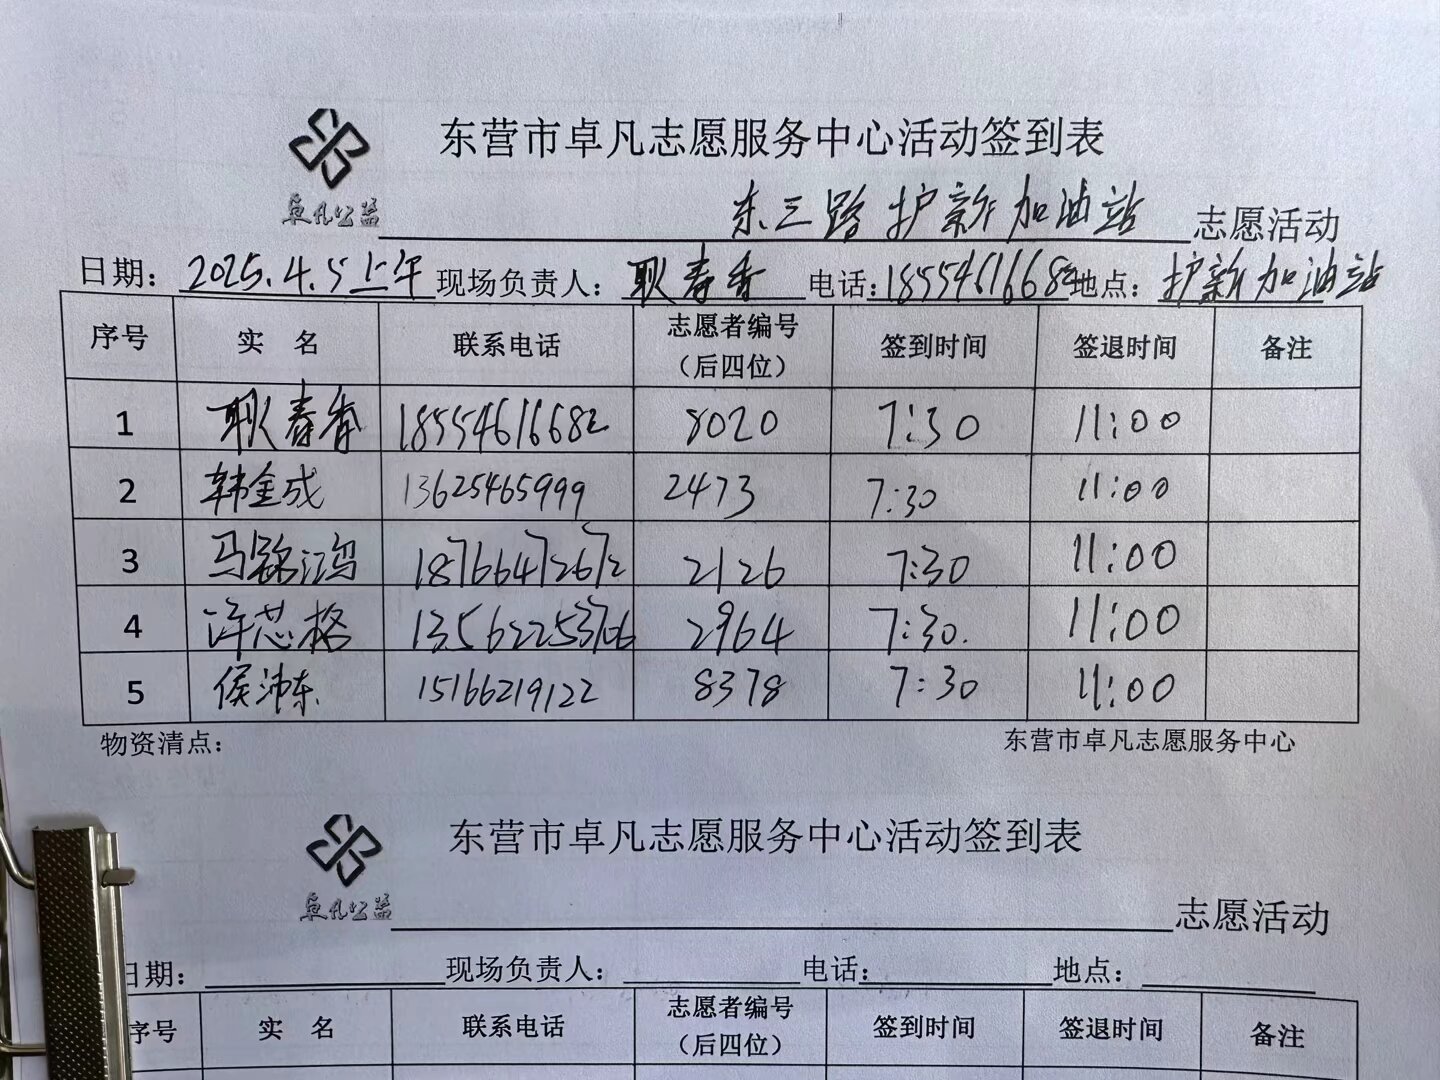 东营市卓凡志愿服务中心活动签到表
卓凡公益
东三路护新加油站 志愿活动
日期：2025.4.5上午 现场负责人：耿春香 电话：18554616682 地点：护新加油站
序号 实 名 联系电话 志愿者编号（后四位） 签到时间 签退时间 备注
1 耿春香 18554616682 8020 7:30 11:00
2 韩金成 13625465999 2473 7:30 11:00
3 马 18766472672 2126 7:30 11:00
4 许芯格 13562253706 2964 7:30. 11:00
5 侯沛东 15166219122 8378 7:30 11:00
物资清点： 东营市卓凡志愿服务中心
东营市卓凡志愿服务中心活动签到表
卓凡公益
志愿活动
日期： 现场负责人： 电话： 地点：
序号 实 名 联系电话 志愿者编号（后四位） 签到时间 签退时间 备注